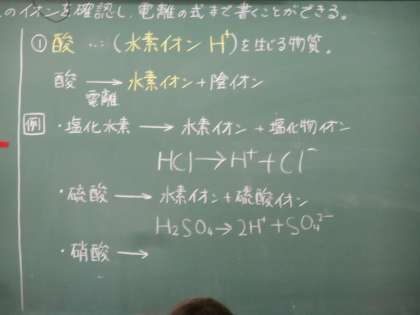 のイオンを確認し、電離の式まで書くことができる。
① 酸 …(水素イオン H⁺)を生じる物質。
酸 → 水素イオン + 陰イオン
電離
例 ・塩化水素 → 水素イオン + 塩化物イオン
HCl → H⁺ + Cl⁻
・硫酸 → 水素イオン + 硫酸イオン
H₂SO₄ → 2H⁺ + SO₄²⁻
・硝酸 →